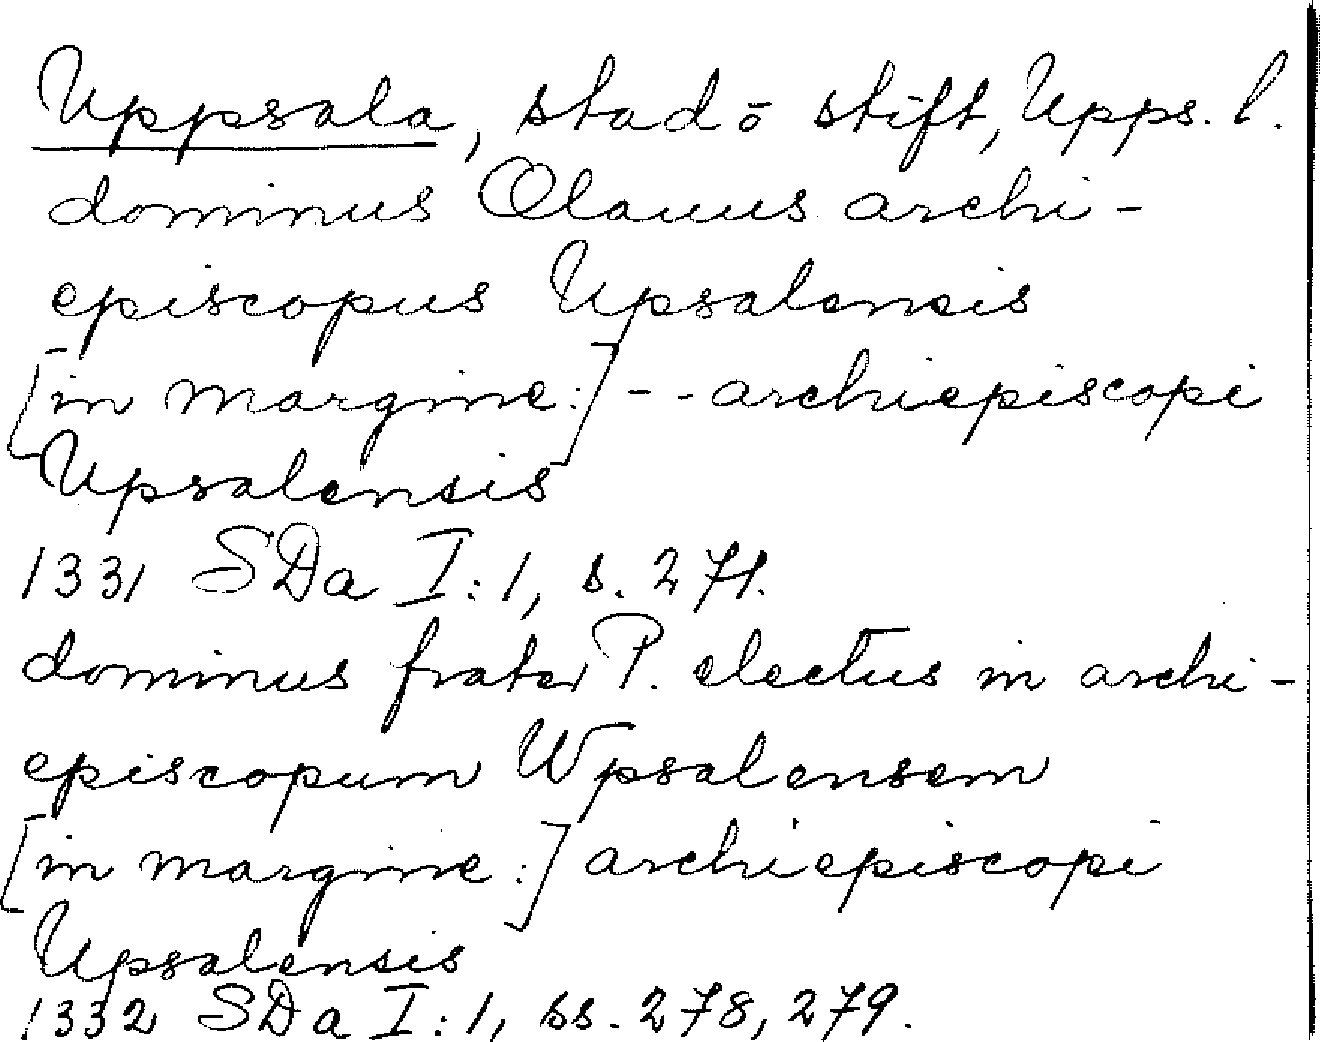 Uppsala, stad o stift, Upps. l.
dominus Olauus archi-
episcopus Upsalensis
[in margine:] -- archiepiscopi
Upsalensis
1331 SDa I:1, s. 271.
dominus frater P. electus in archi-
episcopum Wpsalensem
[in margine:] archiepiscopi
Upsalensis
1332 SDa I:1, ss. 278, 279.